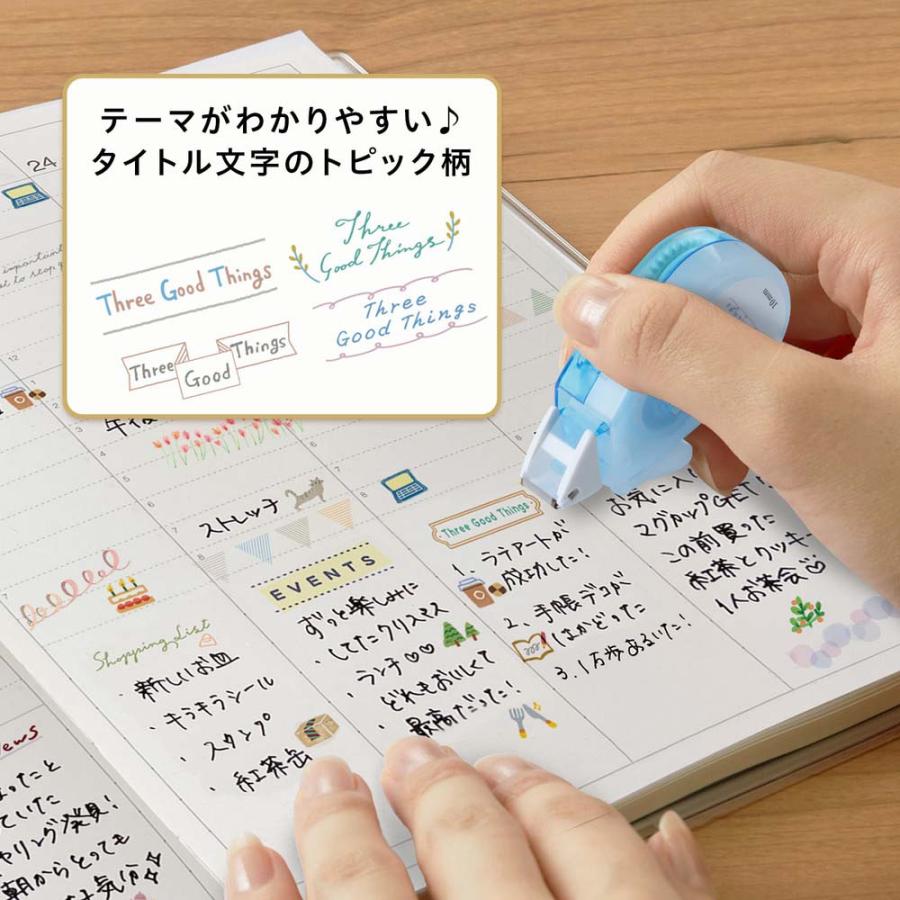 テーマがわかりやすい♪
タイトル文字のトピック柄
Three Good Things
Three
Good Things
Three Good Things
Three
Good Things
24
important
10mm
午後
ストレッチ
Shopping List
・新しいお皿
・キラキラシール
・スタンプ
・紅茶缶
EVENTS
ずっと楽しみに
・してたクリスマス
・ランチ♡♡
どれもおいしくて
・最高だった!
Three Good Things
1. ラテアートが
成功した!
2. 手帳デコが
はかどった
3. 1万歩あるいた!
お気に入り
マグカップGET!
この前買った
紅茶とクッキー
1人お茶会♡
News
ていた
ヤリング発見!
朝からとっても
気分